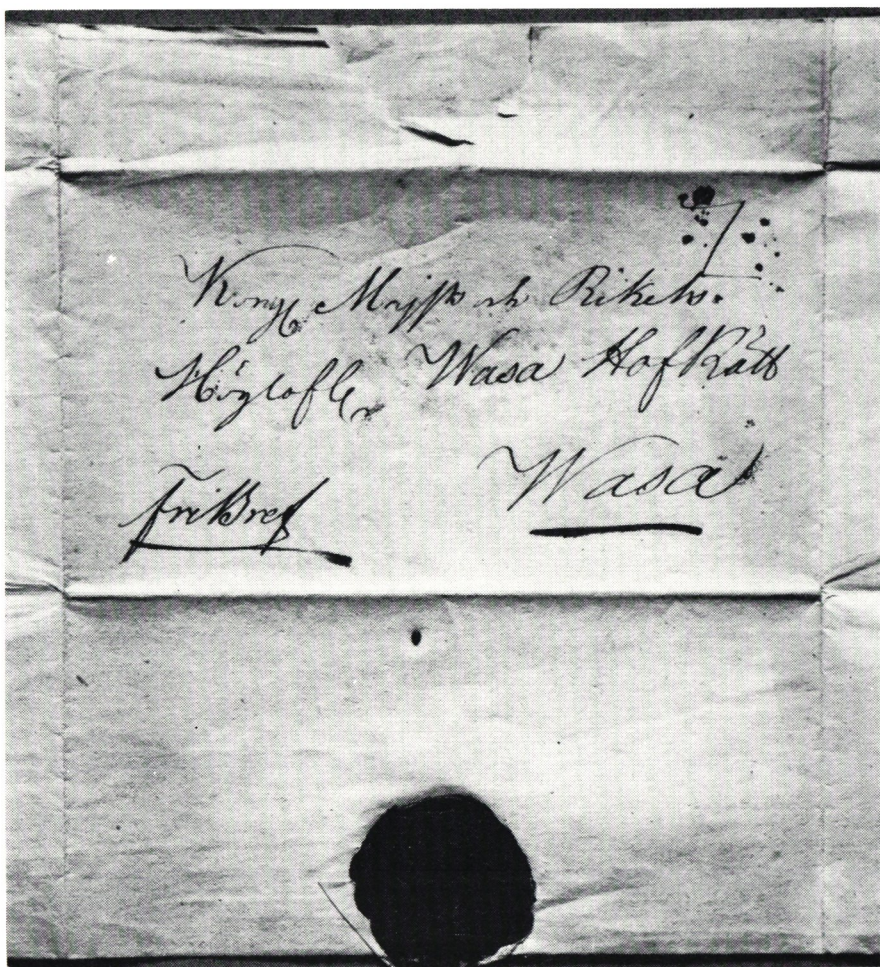 Kongl Majjts och Rikets.
Höglofl Wasa HofRätt
FriBref Wasa